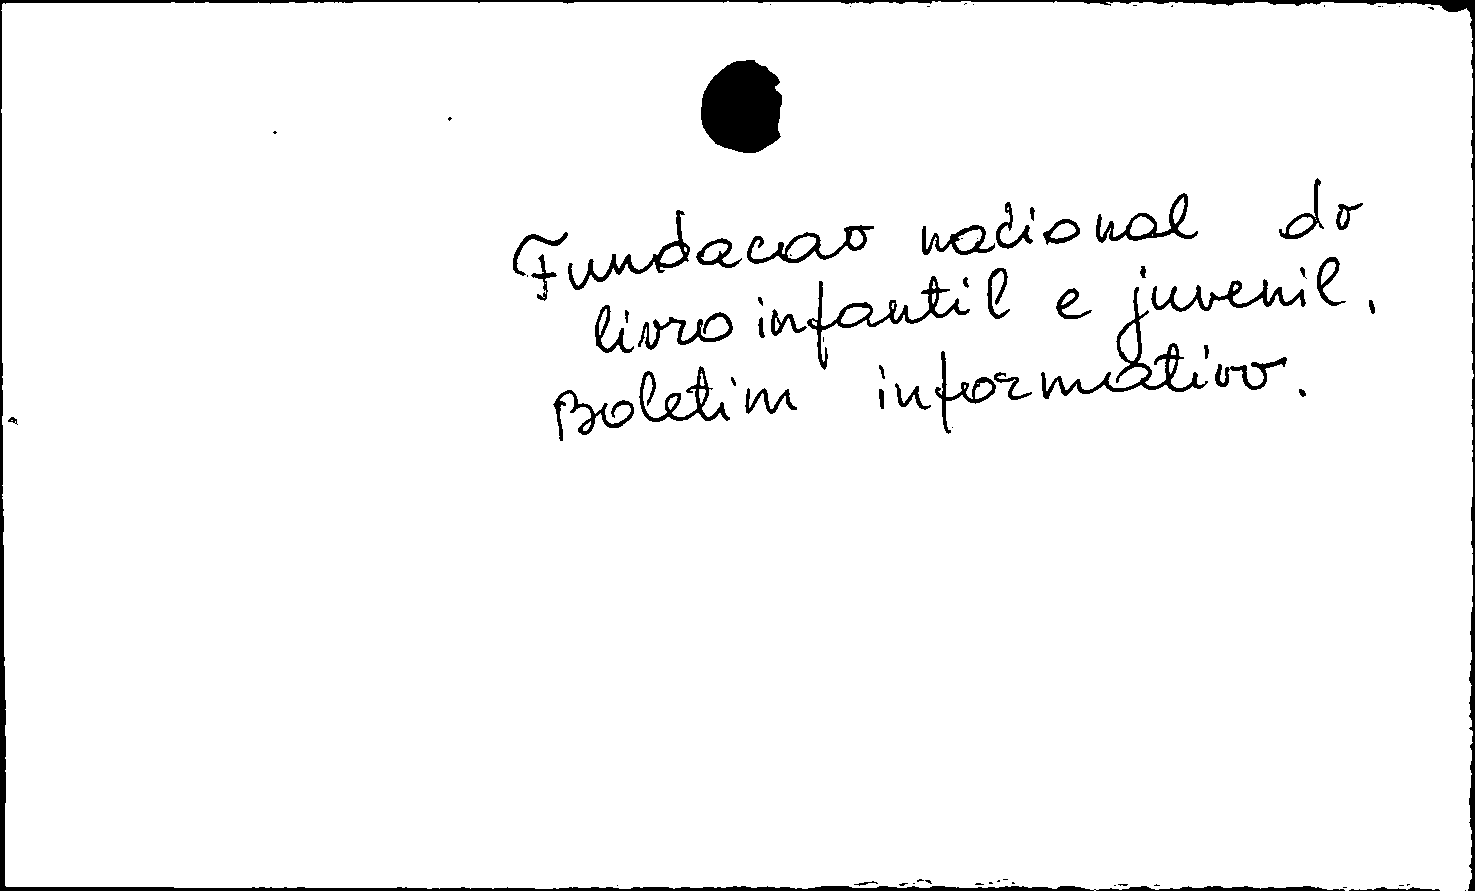 Fundacao nacional do
livro infantil e juvenil.
Boletim informativo.